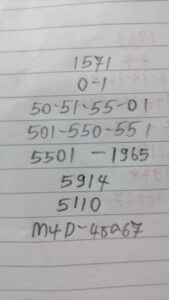 1571
0-1
50-51-55-01
501-550-551
5501 - 1965
5914
5110
M4D-48a67